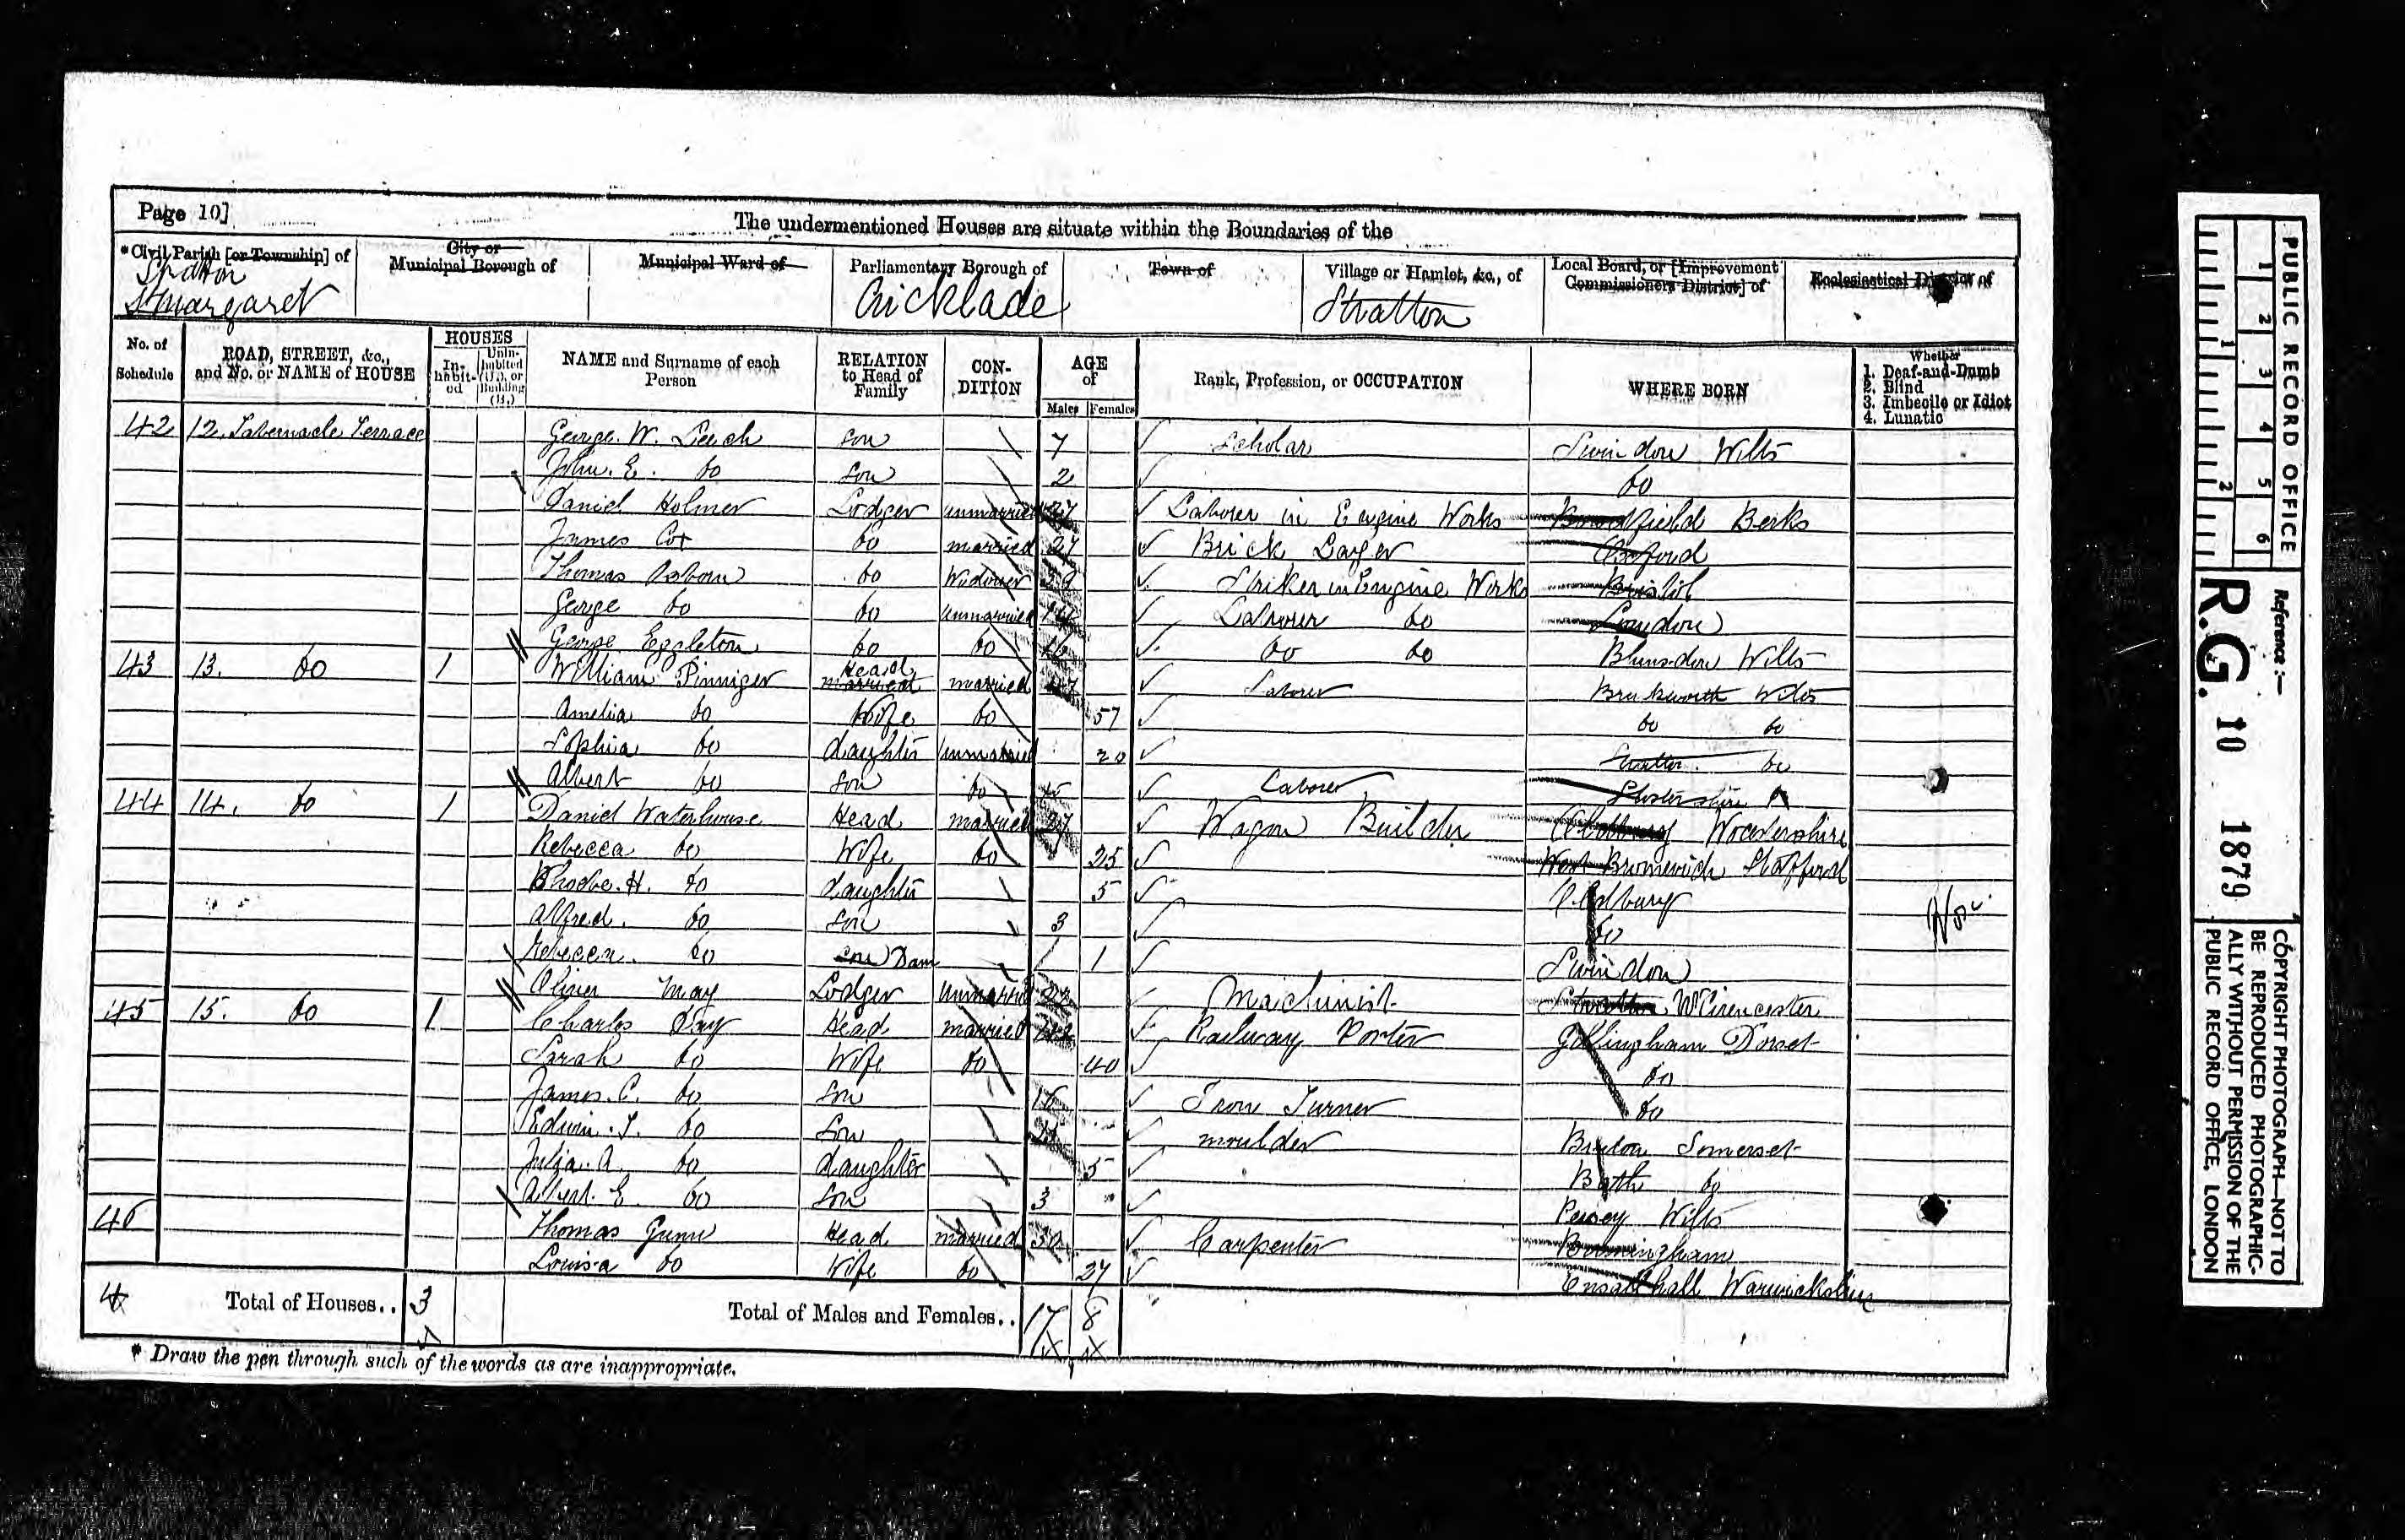 Page 10]
The undermentioned Houses are situate within the Boundaries of the
*Civil Parish [or Township] of
Stratton
St Margaret
City or
Municipal Borough of
Municipal Ward of
Parliamentary Borough of
Cricklade
Town of
Village or Hamlet, &c., of
Stratton
Local Board, or [Improvement
Commissioners District] of
Ecclesiastical District of
No. of
Schedule
ROAD, STREET, &c.,
and No. or NAME of HOUSE
HOUSES
In-
habit-
ed
Unin-
habited
(U.), or
Building
(B.)
NAME and Surname of each
Person
RELATION
to Head of
Family
CON-
DITION
AGE
of
Males Females
Rank, Profession, or OCCUPATION
WHERE BORN
Whether
1. Deaf-and-Dumb
2. Blind
3. Imbecile or Idiot
4. Lunatic
42 12. Tabernacle Terrace George. W. Leech son 7 Scholar Swindon Wilts
John. E. do son 2 do
Daniel Holmer Lodger unmarried 27 Laborer in Engine Works Berks
James Cox do married 27 Brick Layer Oxford
Thomas Osborn do Widower Striker in Engine Works Bristol
George do do unmarried Laborer do London
George Eggleton do do 16 do do Blunsdon Wilts
43 13. do 1 William Pinniger Head married married Laborer Brinkworth Wilts
Amelia do Wife do 57 do do
Sophia do daughter unmarried 20 Stratton do
Albert do son do 15 Laborer
44 14. do 1 Daniel Waterhouse Head married 27 Wagon Builder Oldbury Worcestershire
Rebecca do Wife do 25 West Bromwich Stafford
Phoebe. H. do daughter 5 Oldbury
Alfred. do son 3 do
Rebecca. do son Daur 1 Swindon
Oliver May Lodger unmarried Machinist Cirencester
45 15. do 1 Charles Day Head married Railway Porter Gillingham Dorset
Sarah do Wife do 40 do
James. C. do son 16 Iron Turner do
Edwin. T. do son moulder Bruton Somerset
Julia. A. do daughter 5 Bath do
Albert. E. do son 3 Pewsey Wilts
46 Thomas Gunn Head married 30 Carpenter Birmingham
Louisa do Wife do 27 Warwickshire
4 Total of Houses.. 3
Total of Males and Females.. 17 8
* Draw the pen through such of the words as are inappropriate.
PUBLIC RECORD OFFICE
1 2 3 4 5 6
1 2
Reference:—
R.G. 10 1879
COPYRIGHT PHOTOGRAPH—NOT TO
BE REPRODUCED PHOTOGRAPHIC-
ALLY WITHOUT PERMISSION OF THE
PUBLIC RECORD OFFICE, LONDON